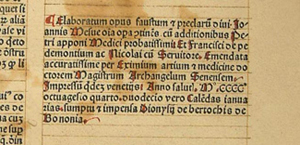 ¶ Elaboratum opus faustum ⁊ preclarū diui Io-
annis Mesue oīa opa ꝯtinēs. cū additionibus Pe
tri apponi Medici probatissimi Et Francisci de pe
demontium ac Nicolai cū Seruitore. Emendata
accuratissime per Eximium artium ⁊ medicine do
ctorem Magistrum Archangelum Senensem.
Impressūqꝫ dez venetiis Anno salut. M.CCCC
octuagesīo quarto. duodecio vero Calēdas ianu
arias. sumptu ⁊ impensa Dionysij de bertochis de
Bononia.